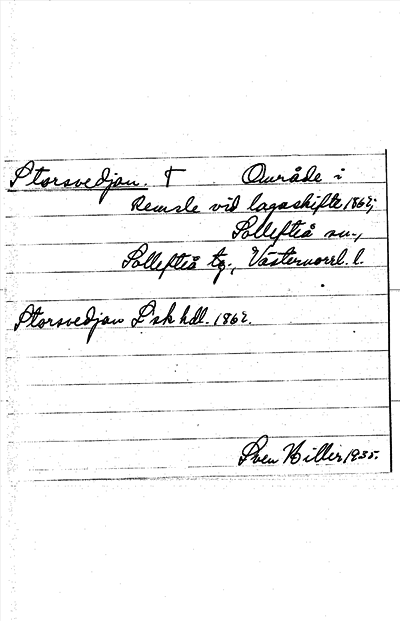 Storsvedjan. † Område i
Remsle vid lagaskifte 1862;
Sollefteå sn.,
Sollefteå tg., Västernorrl. l.
Storsvedjan L sk hdl. 1862.
Sven Hillier 1935.